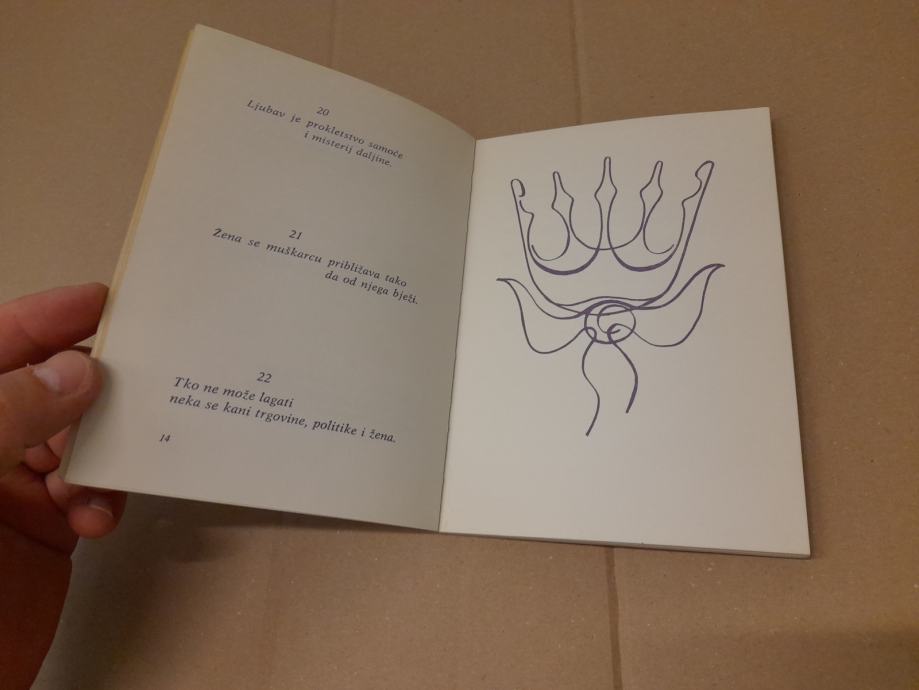 20
Ljubav je prokletstvo samoće
i misterij daljine.
21
Žena se muškarcu približava tako
da od njega bježi.
22
Tko ne može lagati
neka se kani trgovine, politike i žena.
14